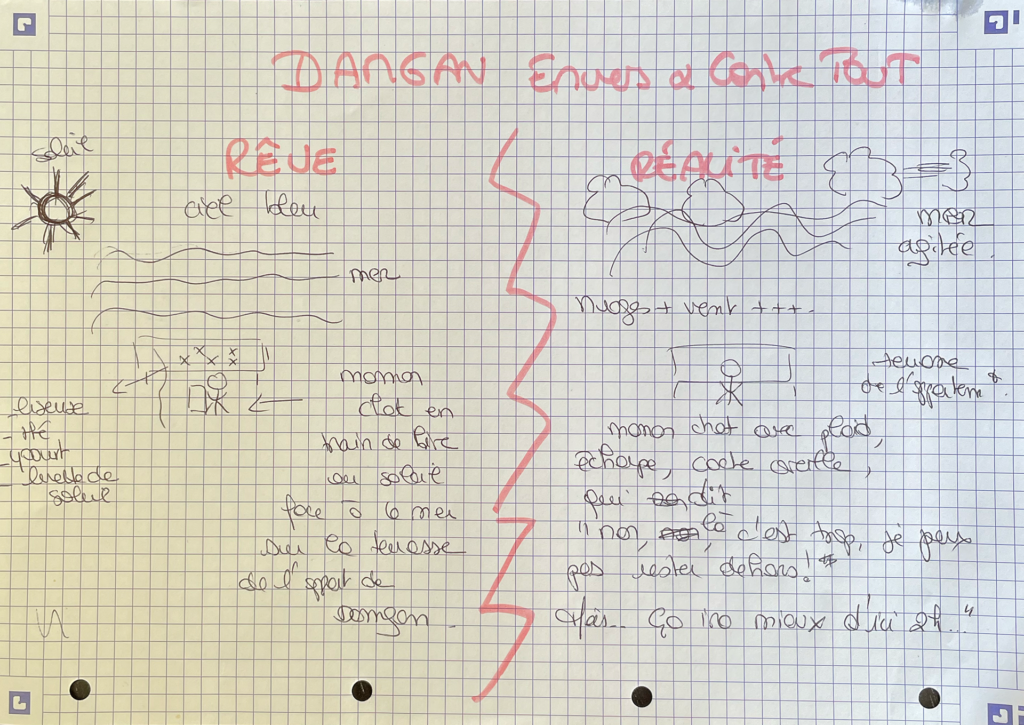 DANGAN Envers & Contre TOUT
RÊVE
soleil
ciel bleu
mer
- liseuse
- thé
- yaourt
- lunette de
soleil
maman
chat en
train de lire
au soleil
face à la mer
sur la terrasse
de l'appart de
Dangan.
RÉALITÉ
mer
agitée.
nuages + vent +++.
terrasse
de l'appartem
maman chat avec plaid,
écharpe, cache oreille,
qui dit
"non, là, c'est trop, je peux
pas rester dehors!
Mais... ça ira mieux d'ici 2h..."